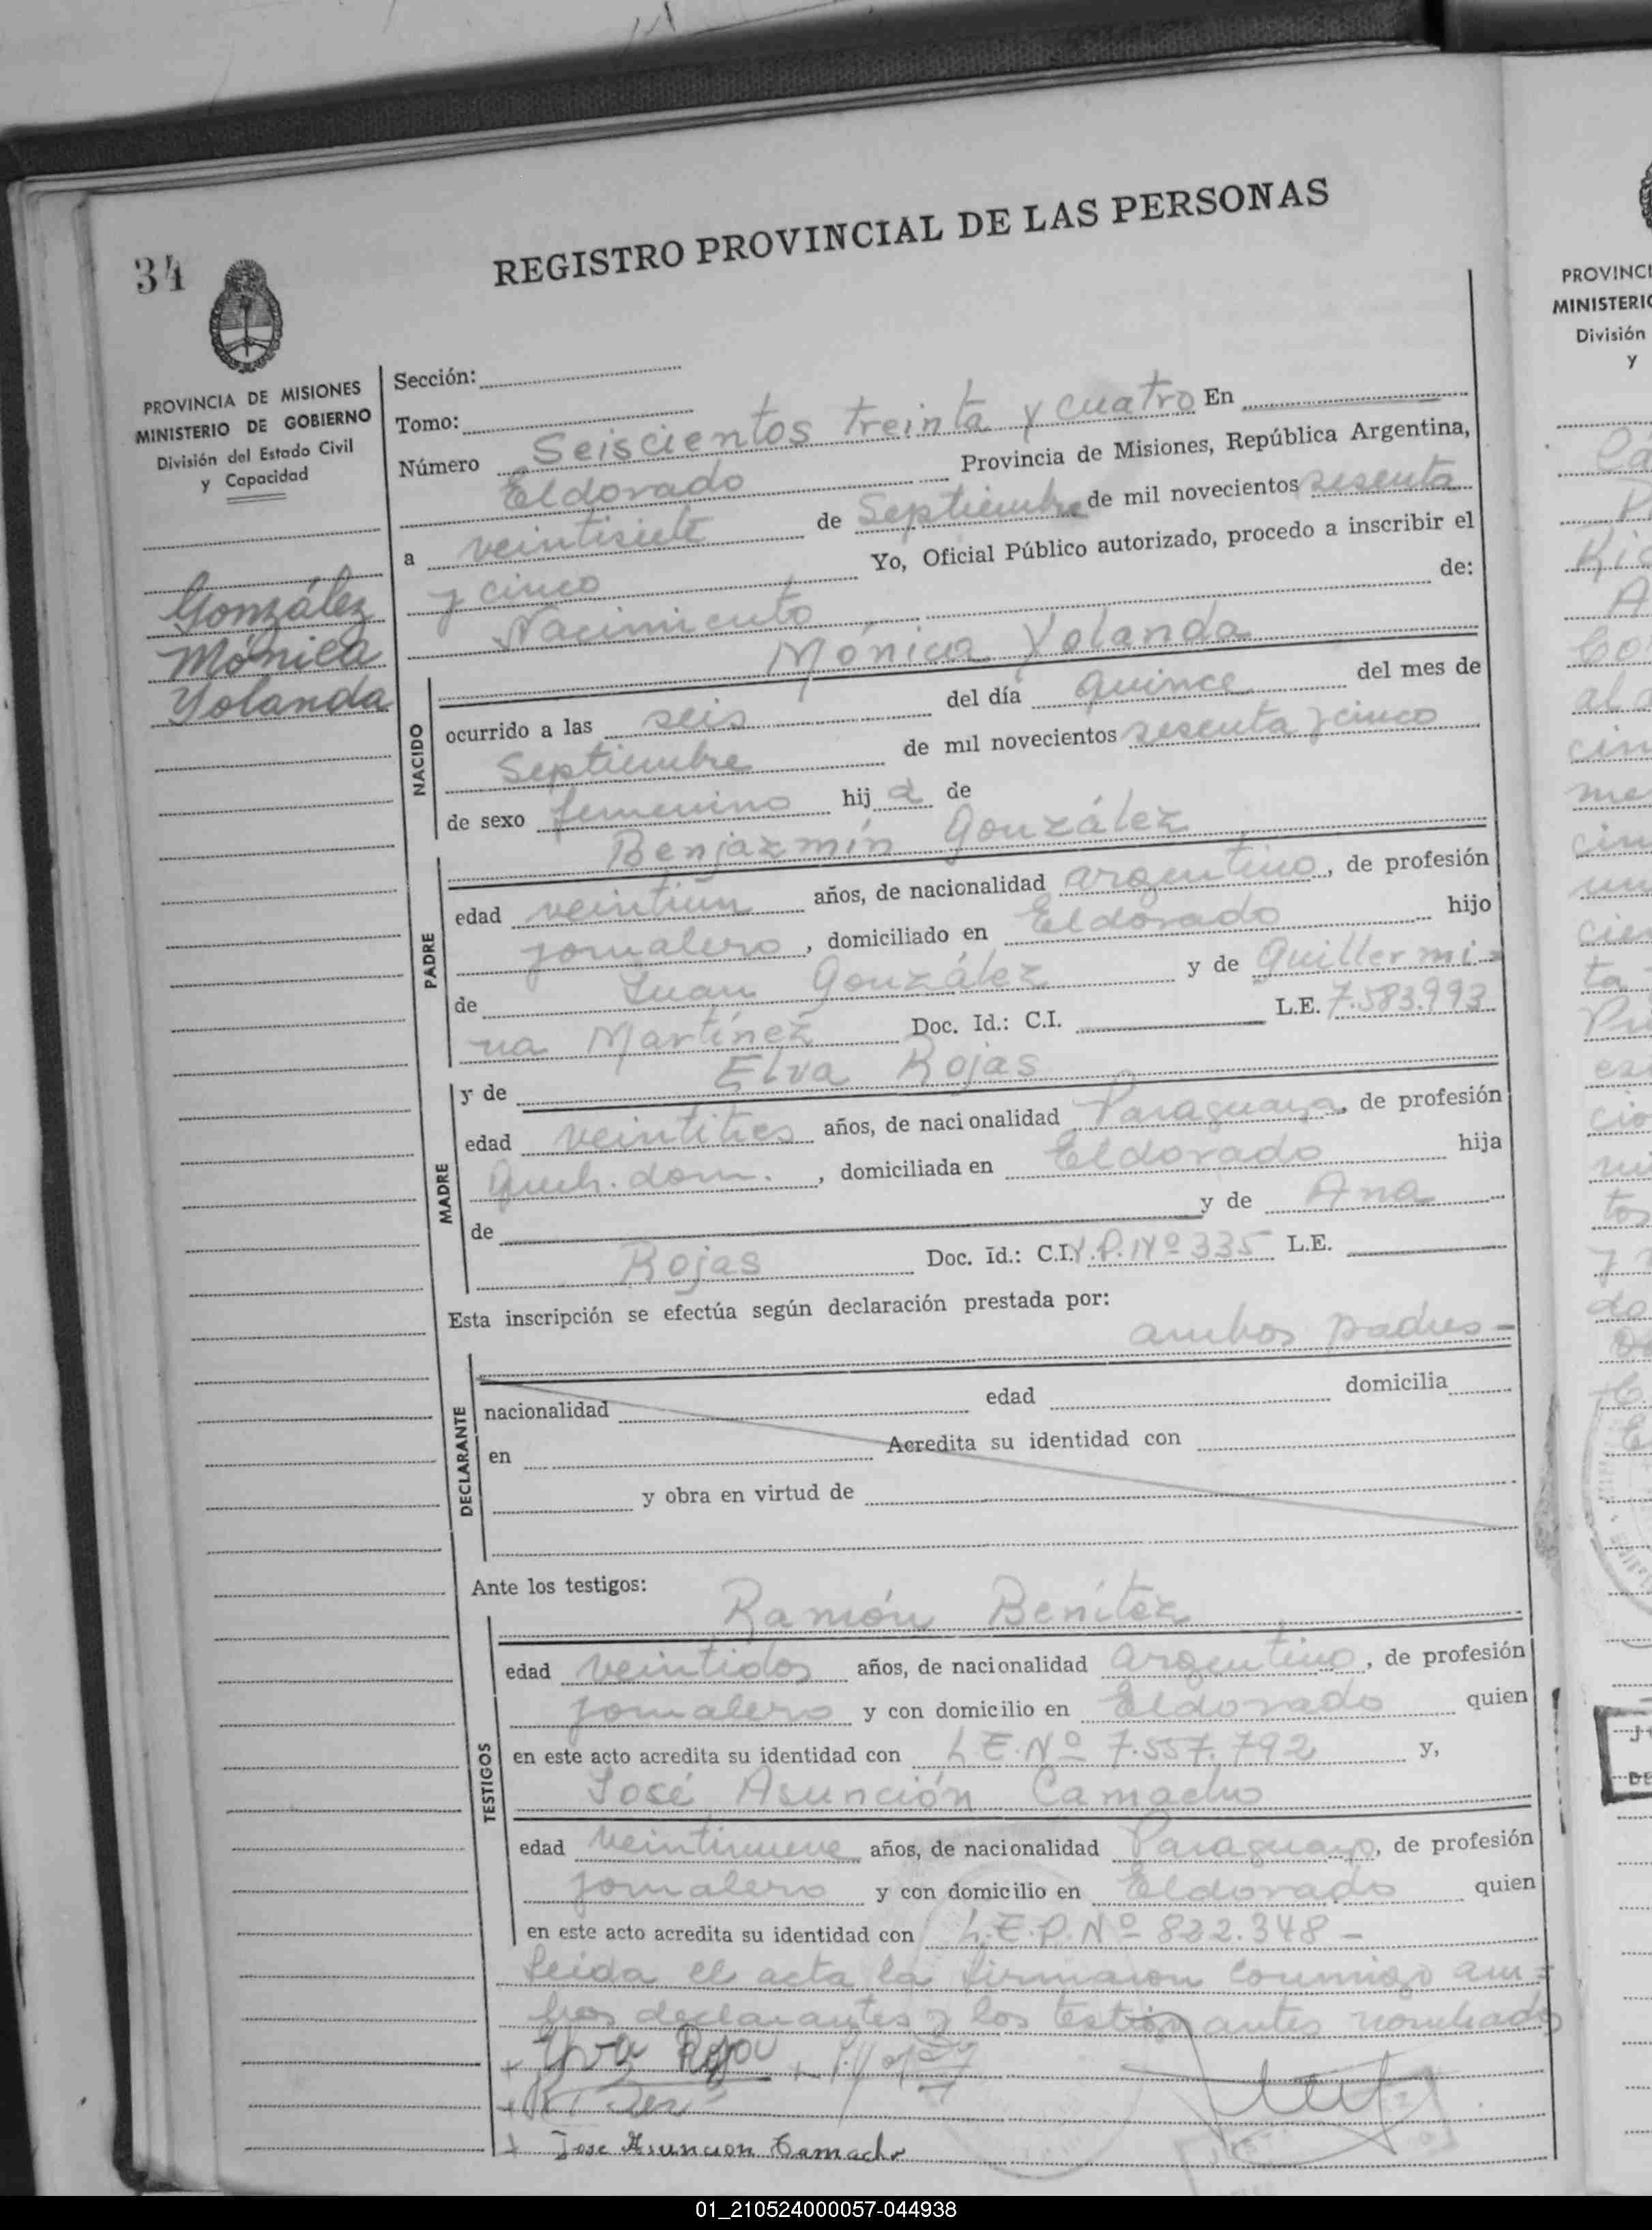 REGISTRO PROVINCIAL DE LAS PERSONAS
34
PROVINCIA DE MISIONES
MINISTERIO DE GOBIERNO
División del Estado Civil
y Capacidad
González
Mónica
Yolanda
Sección:
Tomo:
Número Seiscientos treinta y cuatro En
Eldorado Provincia de Misiones, República Argentina,
a veintisiete de Septiembre de mil novecientos sesenta
y cinco Yo, Oficial Público autorizado, procedo a inscribir el
Nacimiento de:
NACIDO
Mónica Yolanda
ocurrido a las seis del día quince del mes de
Septiembre de mil novecientos sesenta y cinco
de sexo femenino hij a de
PADRE
Benjazmín González
edad veintiun años, de nacionalidad argentino, de profesión
jornalero, domiciliado en Eldorado hijo
de Juan González y de Guillermi-
na Martínez Doc. Id.: C.I. L.E. 7.583.993
MADRE
y de Elva Rojas
edad veintitres años, de nacionalidad Paraguaya, de profesión
Queh. dom., domiciliada en Eldorado hija
de y de Ana
Rojas Doc. Id.: C.I. Y.P. Nº 335 L.E.
Esta inscripción se efectúa según declaración prestada por:
ambos padres-
DECLARANTE
nacionalidad edad domicilia
en Acredita su identidad con
y obra en virtud de
Ante los testigos:
TESTIGOS
Ramón Benítez
edad veintidos años, de nacionalidad argentino, de profesión
jornalero y con domicilio en Eldorado quien
en este acto acredita su identidad con L.E. Nº 7.557.792 y,
José Asunción Camacho
edad veintinueve años, de nacionalidad Paraguayo, de profesión
jornalero y con domicilio en Eldorado quien
en este acto acredita su identidad con L.E.P. Nº 822.348 -
Leída el acta la firmaron conmigo am-
bos declarantes y los testigos antes nombrados
Rojas
Jose Asuncion Camacho
PROVINCI
MINISTERIO
División
y
01_210524000057-044938